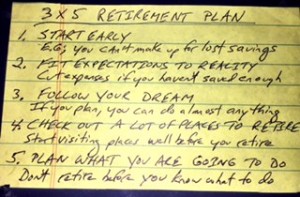 3 X 5 RETIREMENT PLAN
1. START EARLY
E.G, you can't make up for lost savings
2. FIT EXPECTATIONS TO REALITY
Cut expenses if you haven't saved enough
3. FOLLOW YOUR DREAM
If you plan, you can do almost anything
4. CHECK OUT A LOT OF PLACES TO RETIRE
Start visiting places well before you retire
5. PLAN WHAT YOU ARE GOING TO DO
Don't retire before you know what to do